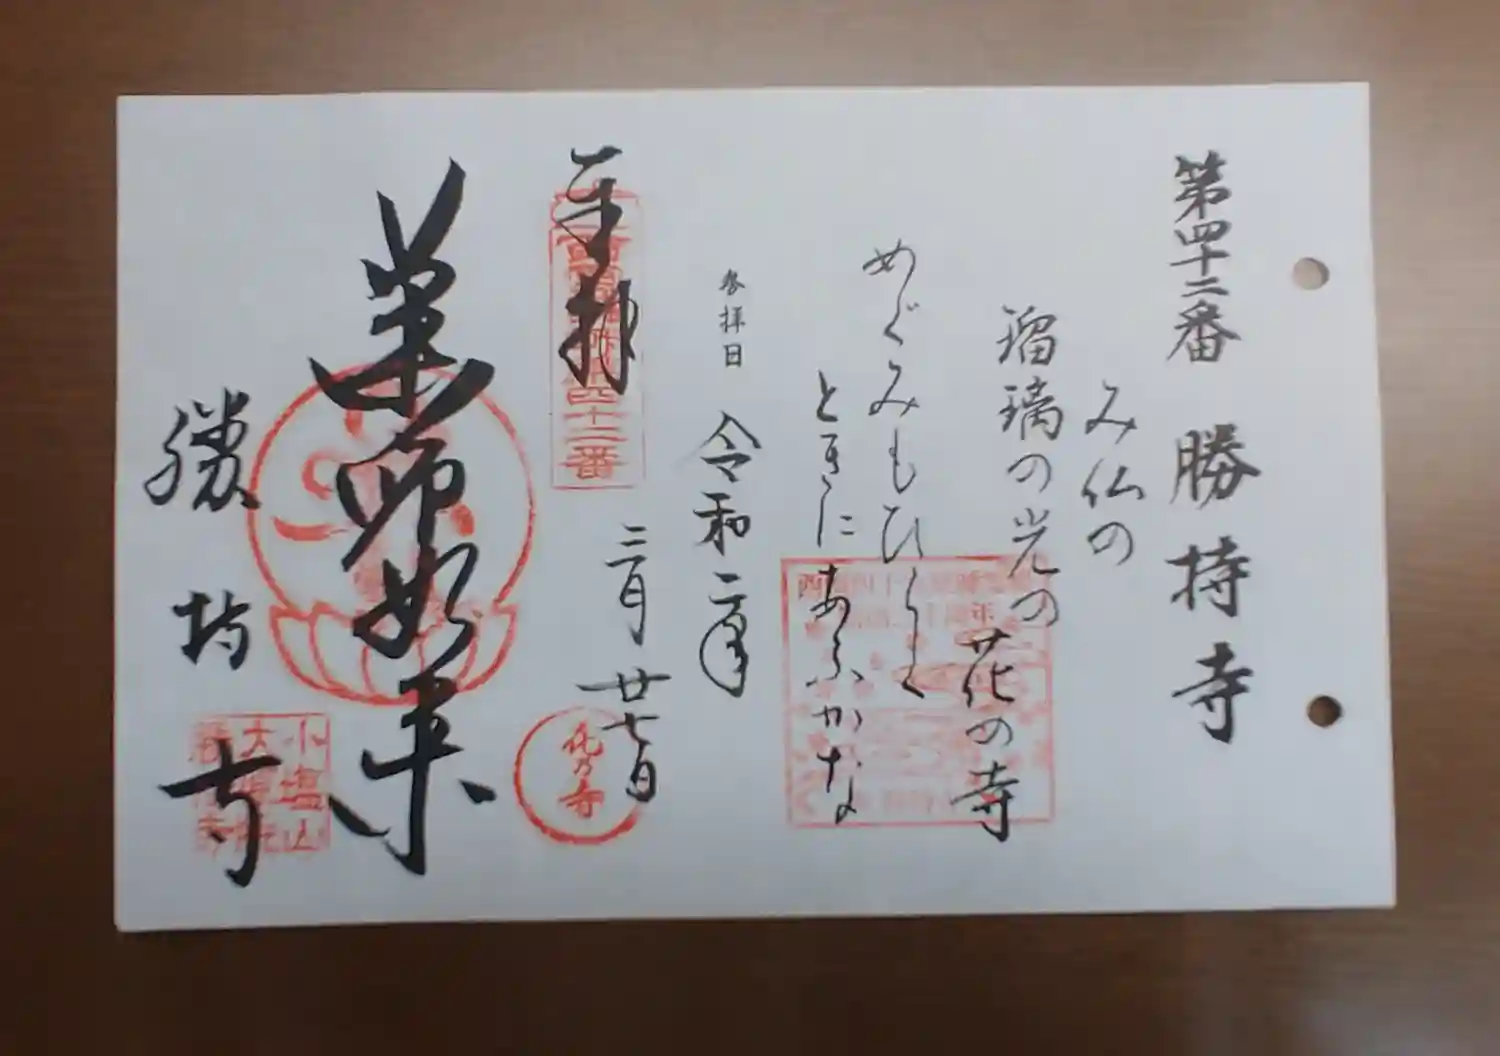 第四十二番 勝持寺
み仏の
瑠璃の光の
花の寺
めぐみもひらく
ときにあふかな
参拝日 令和二年
三月廿七日
奉拝
四十二番
花乃寺
薬師如来
勝持寺
小塩山
大原院